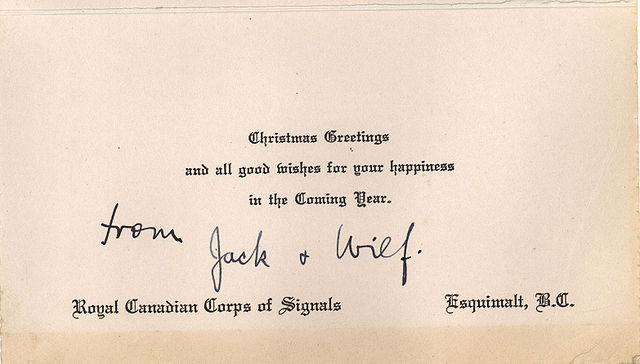 Christmas Greetings
and all good wishes for your happiness
in the Coming Year.
from Jack & Wilf.
Royal Canadian Corps of Signals Esquimalt, B.C.